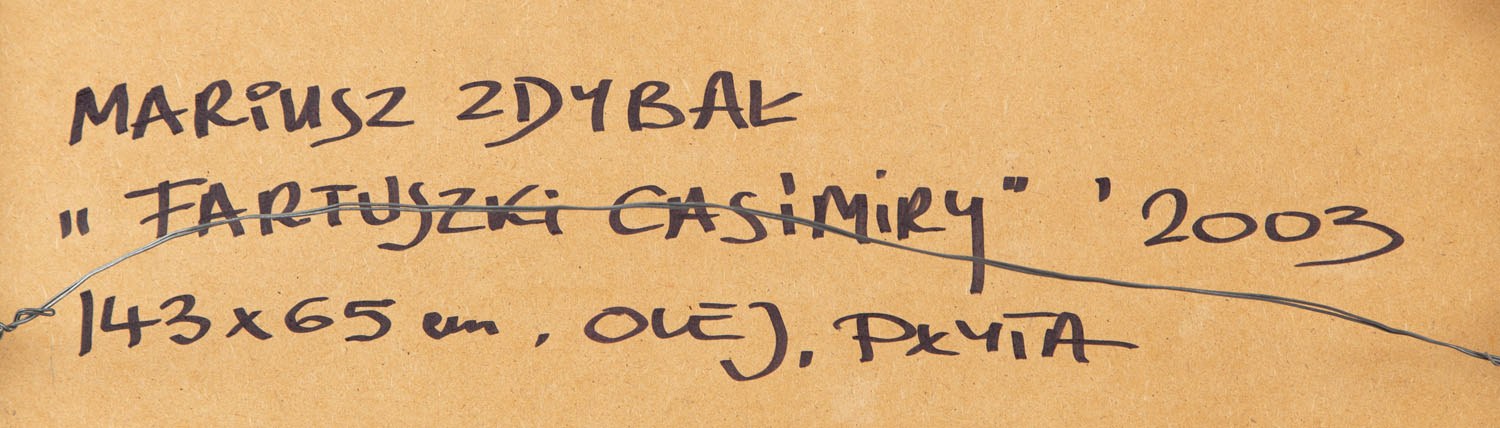 MARIUSZ ZDYBAŁ
"FARTUSZKI CASIMIRY" '2003
143x65 cm, OLEJ, PŁYTA